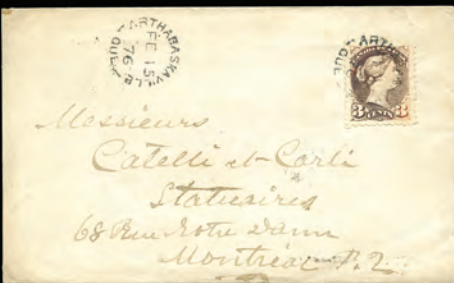 ARTHABASKAVILLE QUE
FE 15
76
3 CENTS 3
Messieurs
Catelli et Carli
Statuaires
68 Rue Notre Dame
Montréal P. Q.